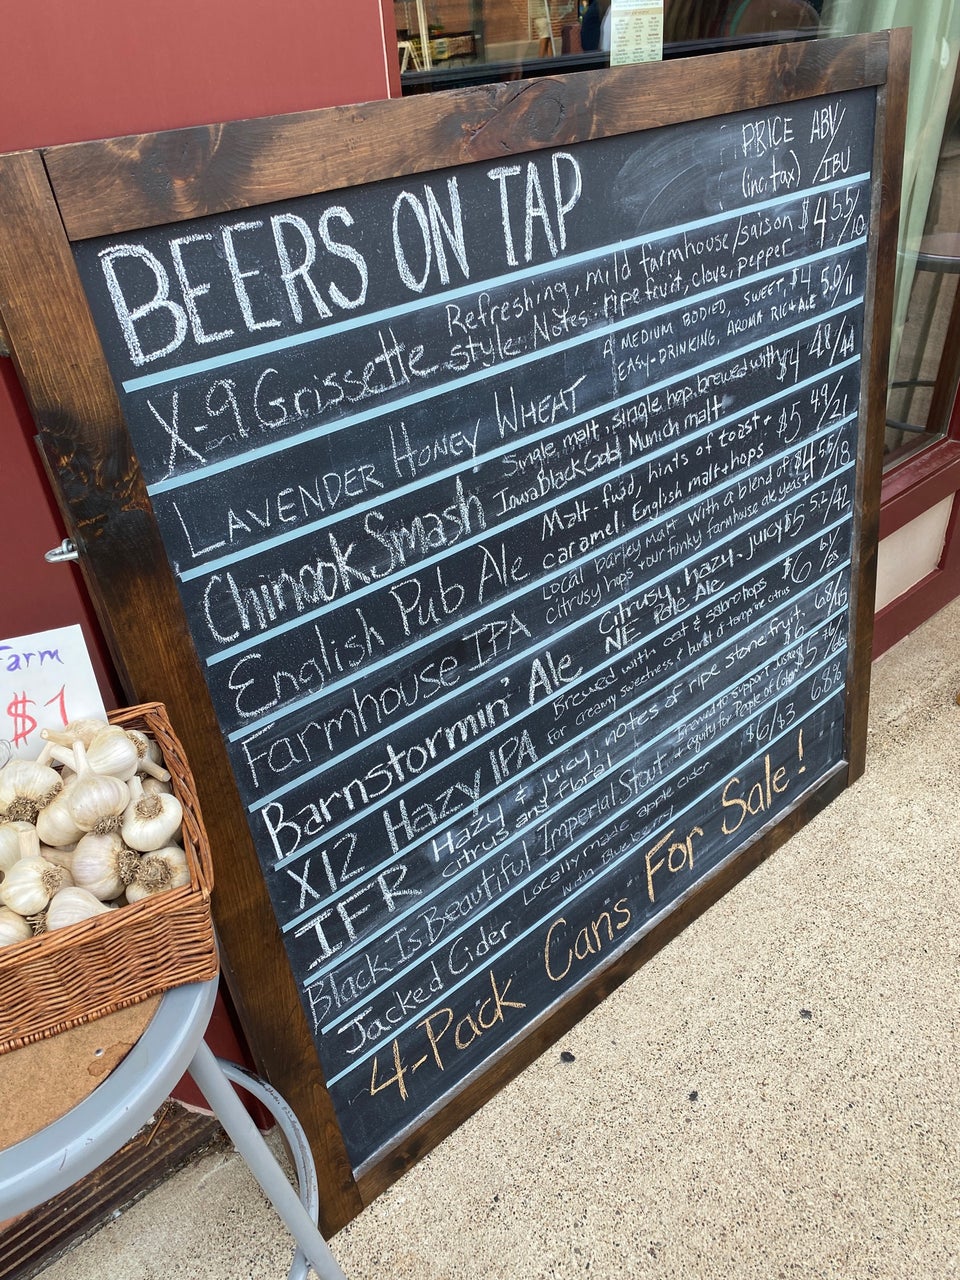 BEERS ON TAP
PRICE ABV/
(inc. tax) /IBU
X-9 Grissette Refreshing, mild farmhouse/saison $4 5.5/10
style. Notes: ripe fruit, clove, pepper
LAVENDER HONEY WHEAT A MEDIUM BODIED, SWEET, $4 5.0/11
EASY-DRINKING, AROMA RICH ALE
Chinook Smash Single malt, single hop, brewed with $4 4.8/44
Iowa Black Gold Munich malt.
English Pub Ale Malt-fwd, hints of toast + $5 4.9/21
caramel. English malt + hops
Farmhouse IPA Local barley malt with a blend of $4 4.55/18
citrusy hops + our funky farmhouse ale yeast
Barnstormin' Ale Citrusy, hazy, juicy $5 5.2/42
NE Pale Ale
X12 Hazy IPA Brewed with oat & sabro hops $6
for creamy sweetness & citrus
IFR Hazy & juicy, notes of ripe stone fruit, $6 6.8/
citrus and floral
Black Is Beautiful Imperial Stout brewed to support justice $5
+ equity for People of Color
Jacked Cider Locally made apple cider $6/$3 6.8%
with blueberry
4-Pack Cans For Sale!
Farm
$1